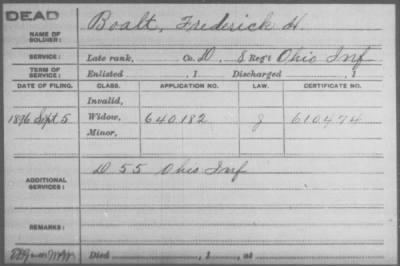 DEAD
NAME OF SOLDIER: Boalt, Frederick H.
SERVICE: Late rank, Co. D, 8 Reg't Ohio Inf
TERM OF SERVICE: Enlisted , 1 Discharged , 1
DATE OF FILING. CLASS. APPLICATION NO. LAW. CERTIFICATE NO.
Invalid,
1896 Sept. 5 Widow, 640.182 610474
Minor,
ADDITIONAL SERVICES: D 55 Ohio Inf
REMARKS:
Died , 1 , at